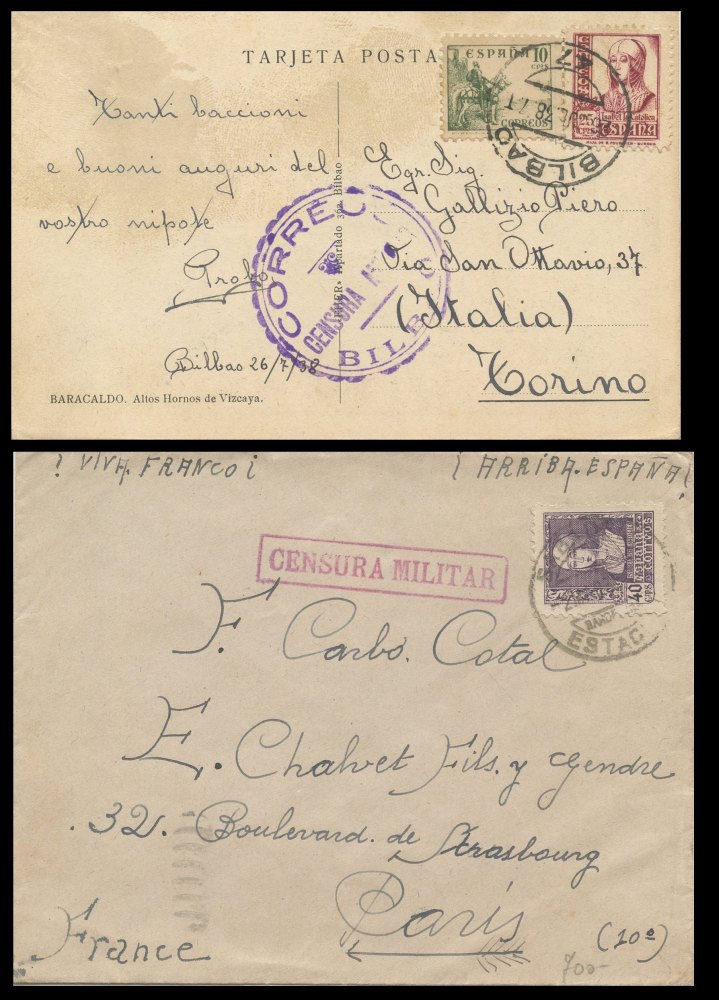 TARJETA POSTA
ESPAÑA 10
CTPS
CORREOS
Isabel la Católica
25
CTS
ESPAÑA
BILBAO
Tanti baccioni
e buoni auguri del
vostro nipote
Bilbao 26/7/38
BARACALDO. Altos Hornos de Vizcaya.
Apartado 362. Bilbao
CORREO
CENSURA
BILB
Egr. Sig.
Gallizio Piero
Via San Ottavio, 37
(Italia)
Torino
¡ VIVA. FRANCO ¡
¡ ARRIBA. ESPAÑA!
CENSURA MILITAR
40
CTS
ESPAÑA
CORREOS
ESTAC
F. Carbo. Cotal
E. Chalvet Fils. y Gendre
. 32. Boulevard. de
Strasbourg
París
France
(10º)
700-